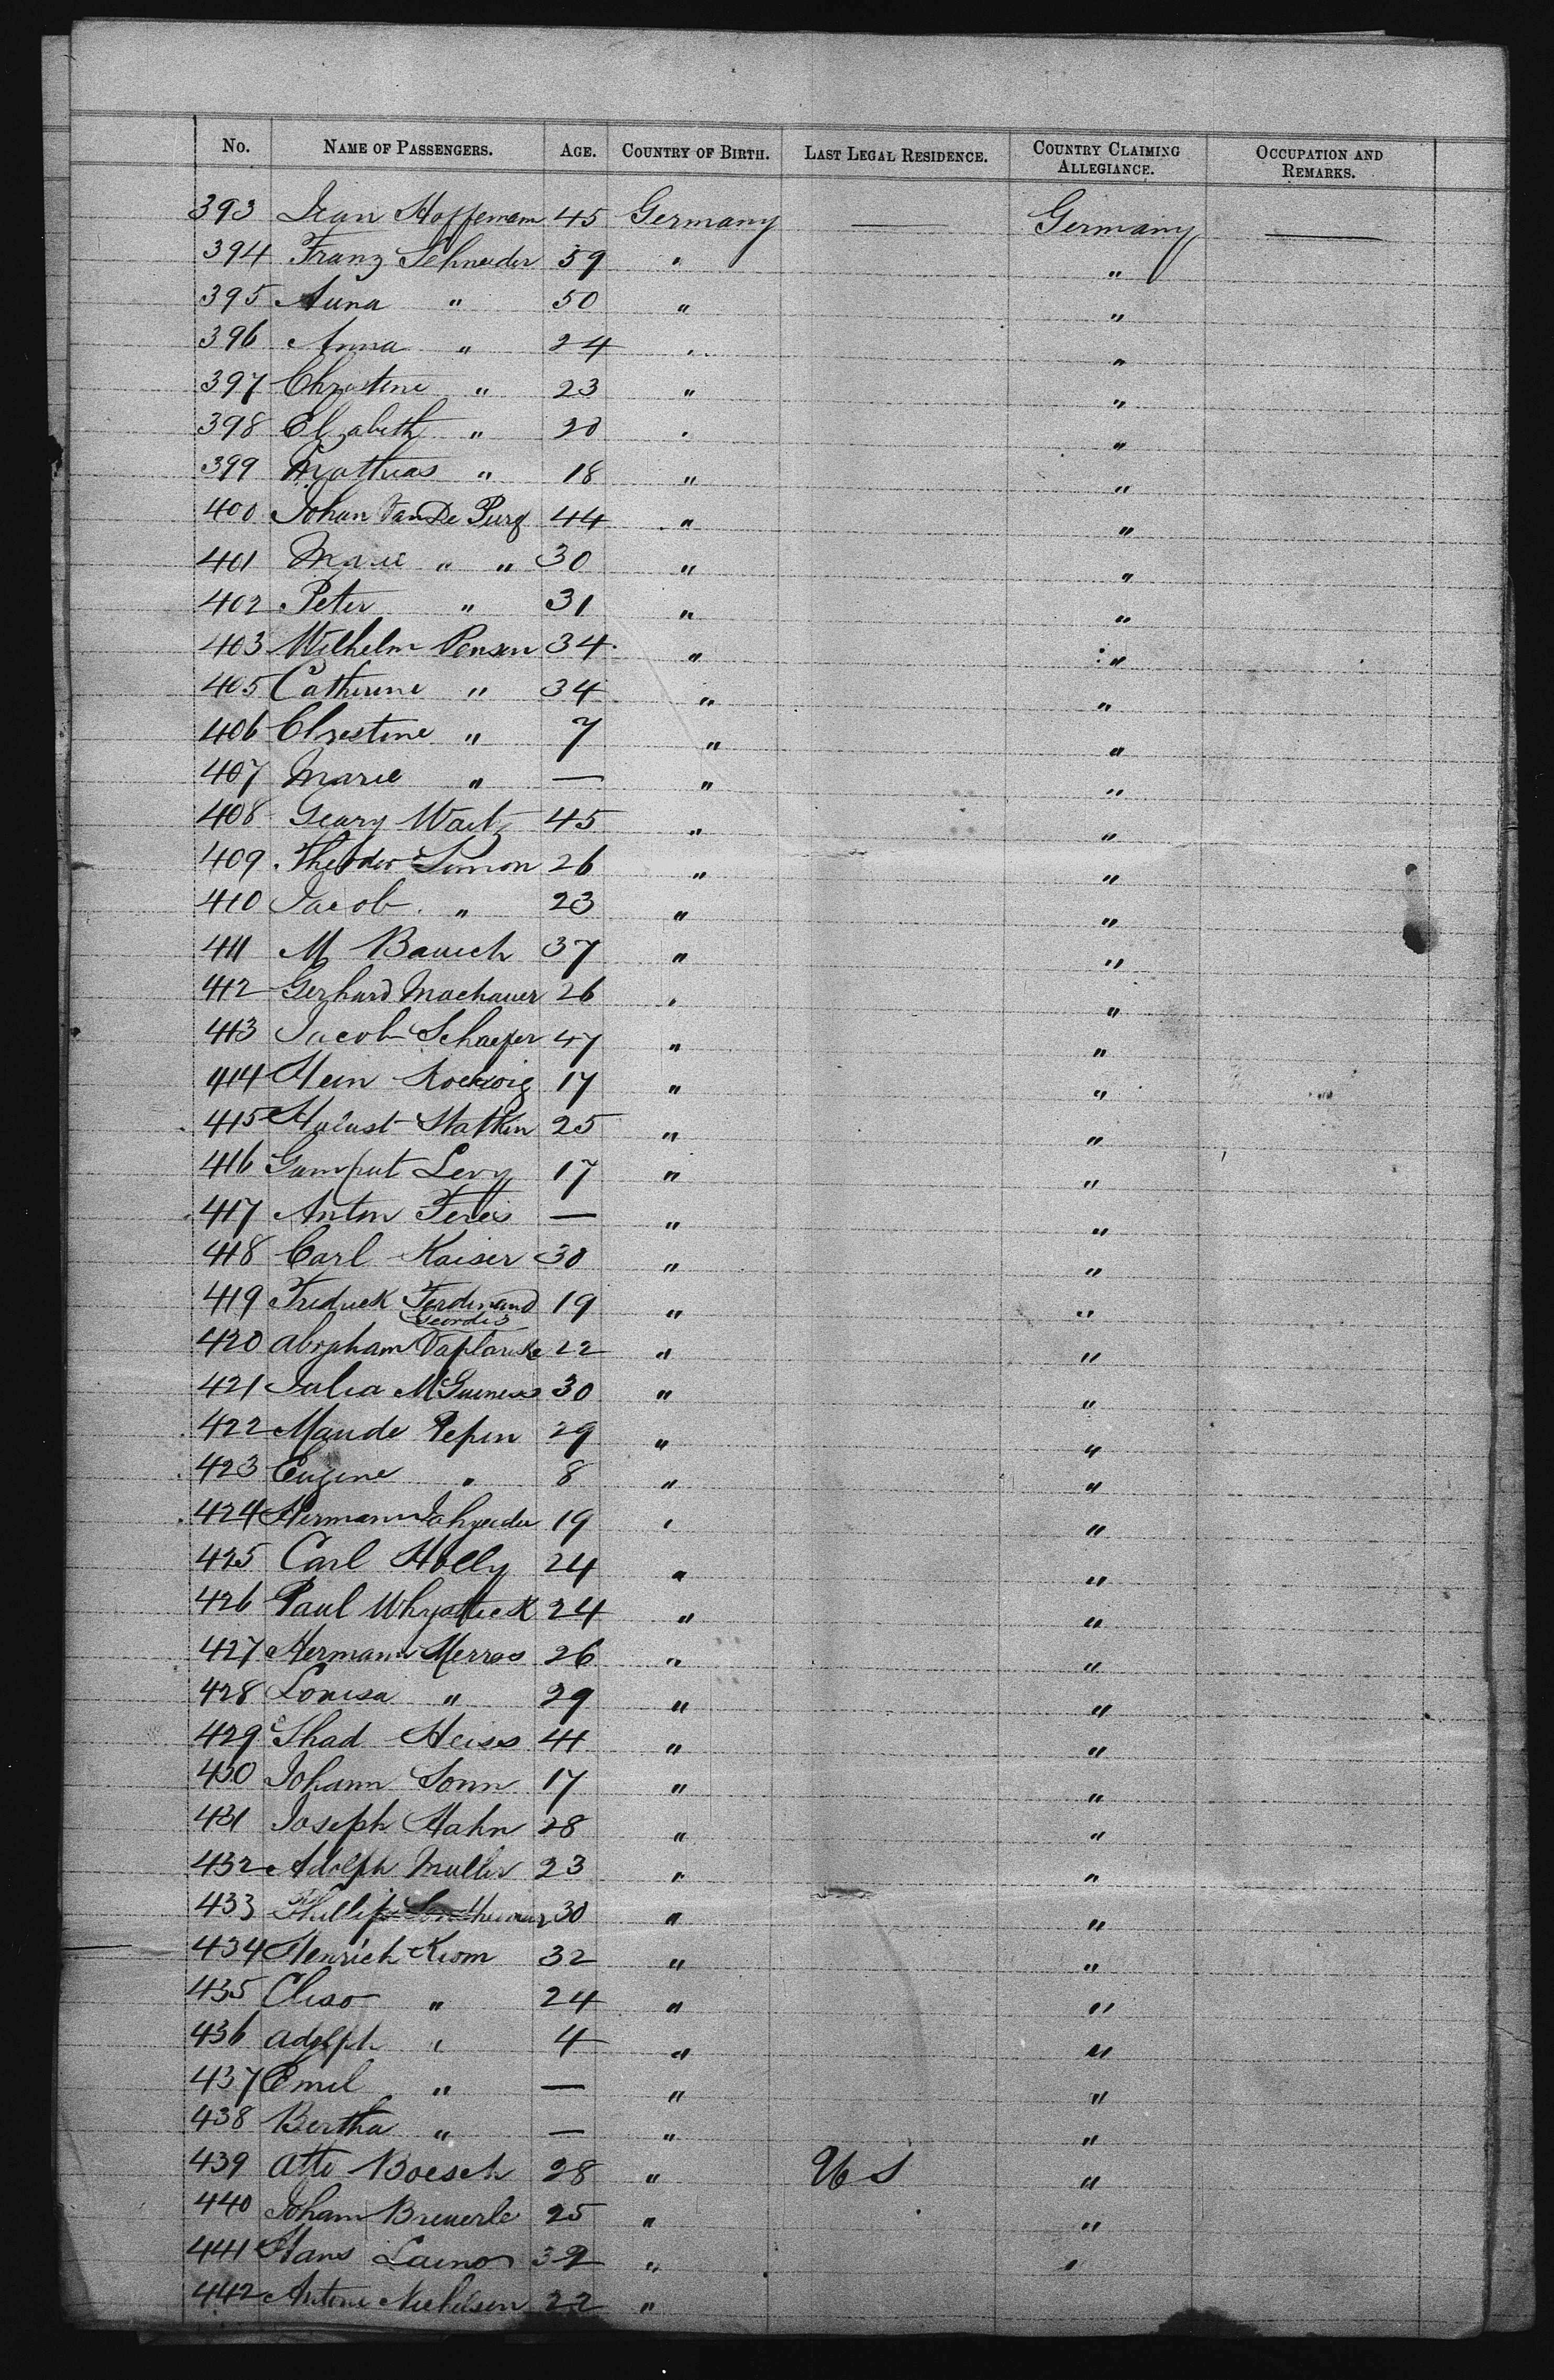 No. NAME OF PASSENGERS. AGE. COUNTRY OF BIRTH. LAST LEGAL RESIDENCE. COUNTRY CLAIMING ALLEGIANCE. OCCUPATION AND REMARKS.
393 Jean Hoffemam 45 Germany — Germany —
394 Franz Schneider 59 " "
395 Anna " 50 " "
396 Anna " 24 " "
397 Christine " 23 " "
398 Elizabeth " 20 " "
399 Mathias " 18 " "
400 Johan VanDe Purg 44 " "
401 Marie " " 30 " "
402 Peter " 31 " "
403 Wilhelm Pensen 34 " "
405 Catherine " 34 " "
406 Christine " 7 " "
407 Marie " — " "
408 Geary Waitz 45 " "
409 Theodor Simon 26 " "
410 Jacob " 23 " "
411 M Bauch 37 " "
412 Gerhard Machauer 26 " "
413 Jacob Schaefer 47 " "
414 Hein 17 " "
415 25 " "
416 Levy 17 " "
417 Anton Feres — " "
418 Carl Kaiser 30 " "
419 Fredrick Ferdinand 19 " "
420 Abraham 22 " "
421 Julia McGuiness 30 " "
422 Maude Pepin 29 " "
423 Eugene " 8 " "
424 Hermann 19 " "
425 Carl Holly 24 " "
426 Paul 24 " "
427 Hermann Merras 26 " "
428 Louisa " 29 " "
429 Thad Heiss 41 " "
430 Johann Sonn 17 " "
431 Joseph Hahn 28 " "
432 Adolph Muller 23 " "
433 Phillip 30 " "
434 Henrich Krom 32 " "
435 " 24 " "
436 Adolph " 4 " "
437 Emil " — " "
438 Bertha " — " "
439 Otto Boesch 28 " U S "
440 Joham Breuerle 25 " "
441 Hans 32 " "
442 Antone Nichelsen 22 "